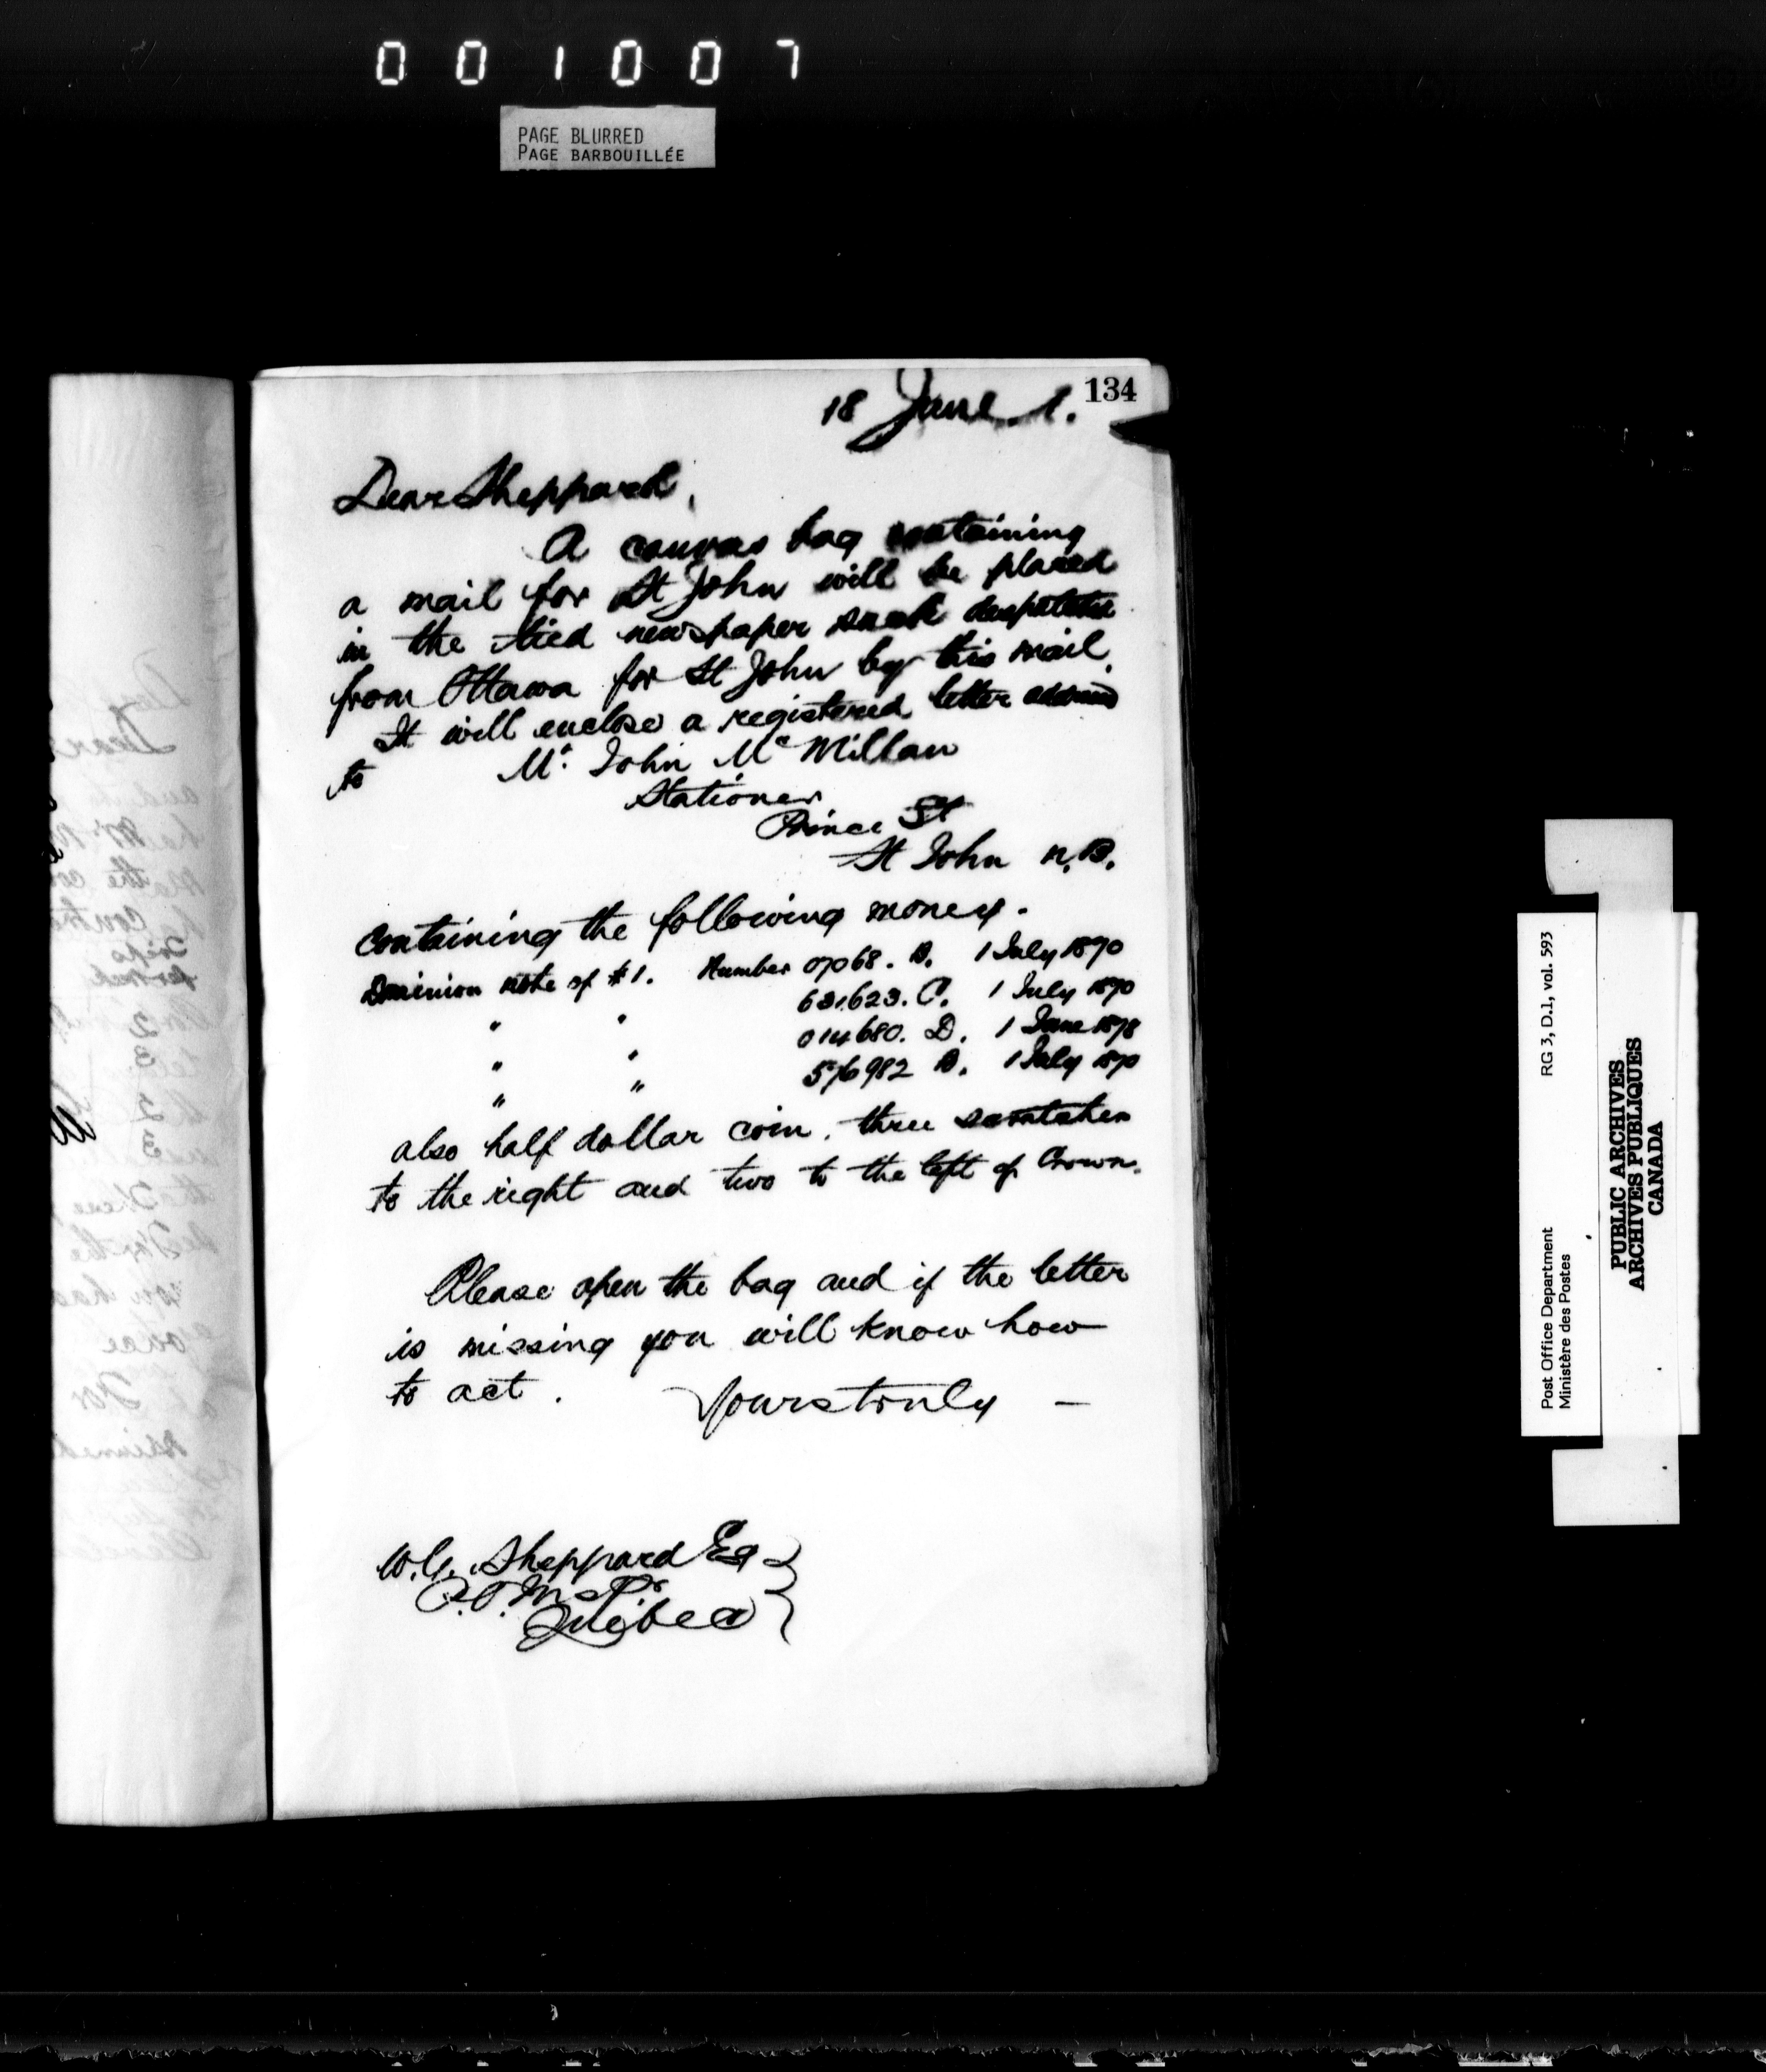 001007
PAGE BLURRED
PAGE BARBOUILLÉE
134
18 June 1.
Dear Sheppard,
A canvas bag containing
a mail for St John will be placed
in the tied newspaper sack despatched
from Ottawa for St John by this mail.
It will enclose a registered letter addressed
to Mr. John McMillan
Stationer
Prince St
St John N.B.
Containing the following money.
Dominion note of $1. Number 07068. B. 1 July 1870
" " 631623. C. 1 July 1870
" " 014680. D. 1 June 1878
" " 576982 B. 1 July 1870
also half dollar coin. three scratches
to the right and two to the left of Crown.
Please open the bag and if the letter
is missing you will know how
to act.
Yours truly —
W.G. Sheppard Esq
P.O. Inspr
Quebec
Post Office Department
Ministère des Postes
RG 3, D.1, vol. 593
PUBLIC ARCHIVES
ARCHIVES PUBLIQUES
CANADA